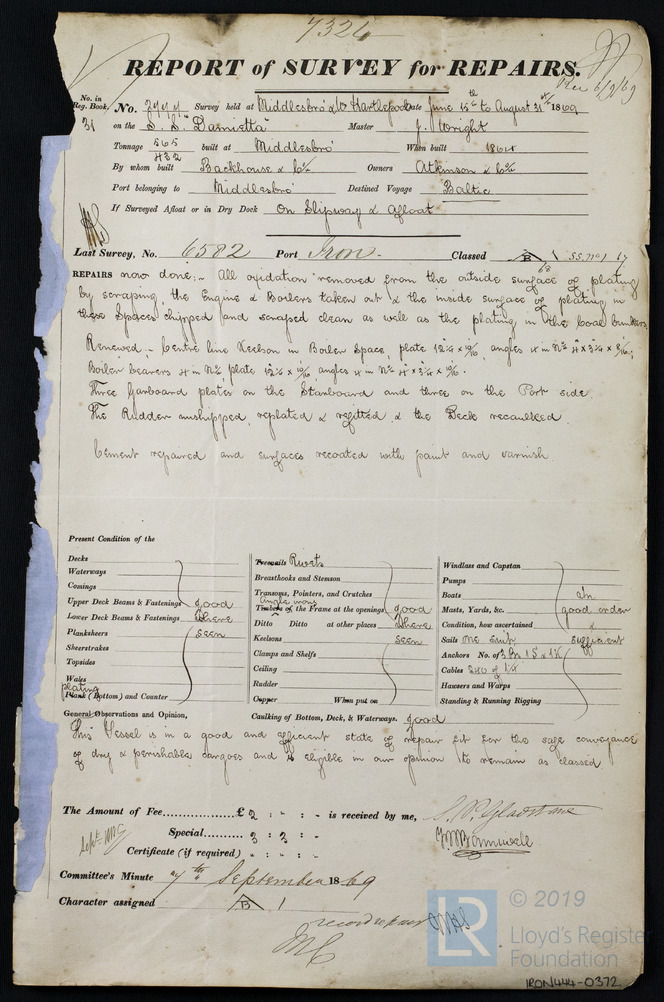 7326
REPORT of SURVEY for REPAIRS.
Rec 6/9/69
No. in Reg. Book. No. Survey held at Middlesbro' & W Hartlepool Date June 15th to August 31st 1869
31 on the S. S. Damietta Master J. Wright
Tonnage 565 built at Middlesbro' When built 1864
432
By whom built Backhouse & Co Owners Atkinson & Co
Port belonging to Middlesbro' Destined Voyage Baltic
If Surveyed Afloat or in Dry Dock On Slipway & Afloat
Last Survey, No. 6582 Port Iron. Classed A 1 SS. No 1
B
68
REPAIRS now done:- All oxidation removed from the outside surface of plating
by scraping, the Engine & Boilers taken out & the inside surface of plating in
these Spaces chipped and scraped clean as well as the plating in the Coal bunkers.
Renewed:- Centre line Keelson in Boiler Space, plate 12 1/4 x 10/16, angles 4 in No 4 x 3 1/4 x 8/16;
Boiler bearers 4 in No plate 12 1/4 x 10/16, angles 4 x 3 1/4 x 10/16.
Three Garboard plates on the Starboard and three on the Port side.
The Rudder unshipped, replated & refitted, & the Deck recaulked.
Cement repaired and surfaces recoated with paint and varnish.
Present Condition of the
Decks
Waterways
Comings
Upper Deck Beams & Fastenings good
Lower Deck Beams & Fastenings Where
Planksheers seen
Sheerstrakes
Topsides
Wales
plating
Plank (Bottom) and Counter
Treenails Rivets
Breasthooks and Stemson
Transoms, Pointers, and Crutches
Angle irons
Timbers of the Frame at the openings good
Ditto Ditto at other places Where
Keelsons seen
Clamps and Shelfs
Ceiling
Rudder
Copper When put on
Windlass and Capstan
Pumps
Boats In
Masts, Yards, &c. good order
Condition, how ascertained &
Sails One Suit sufficient
Anchors No. of 3 Br 1 S & 1 K
Cables 240 of 1 1/4
Hawsers and Warps
Standing & Running Rigging
General Observations and Opinion, Caulking of Bottom, Deck, & Waterways. good
This Vessel is in a good and efficient state of repair fit for the safe conveyance
of dry & perishable cargoes and is eligible in our opinion to remain as classed
The Amount of Fee £ 2 : " : " is received by me,
Special 3 : 3 : "
Certificate (if required) " : " : "
Committee's Minute 7th September 1869
Character assigned A 1
B
record repair
© 2019
LR Lloyd's Register Foundation
IRON444-0372